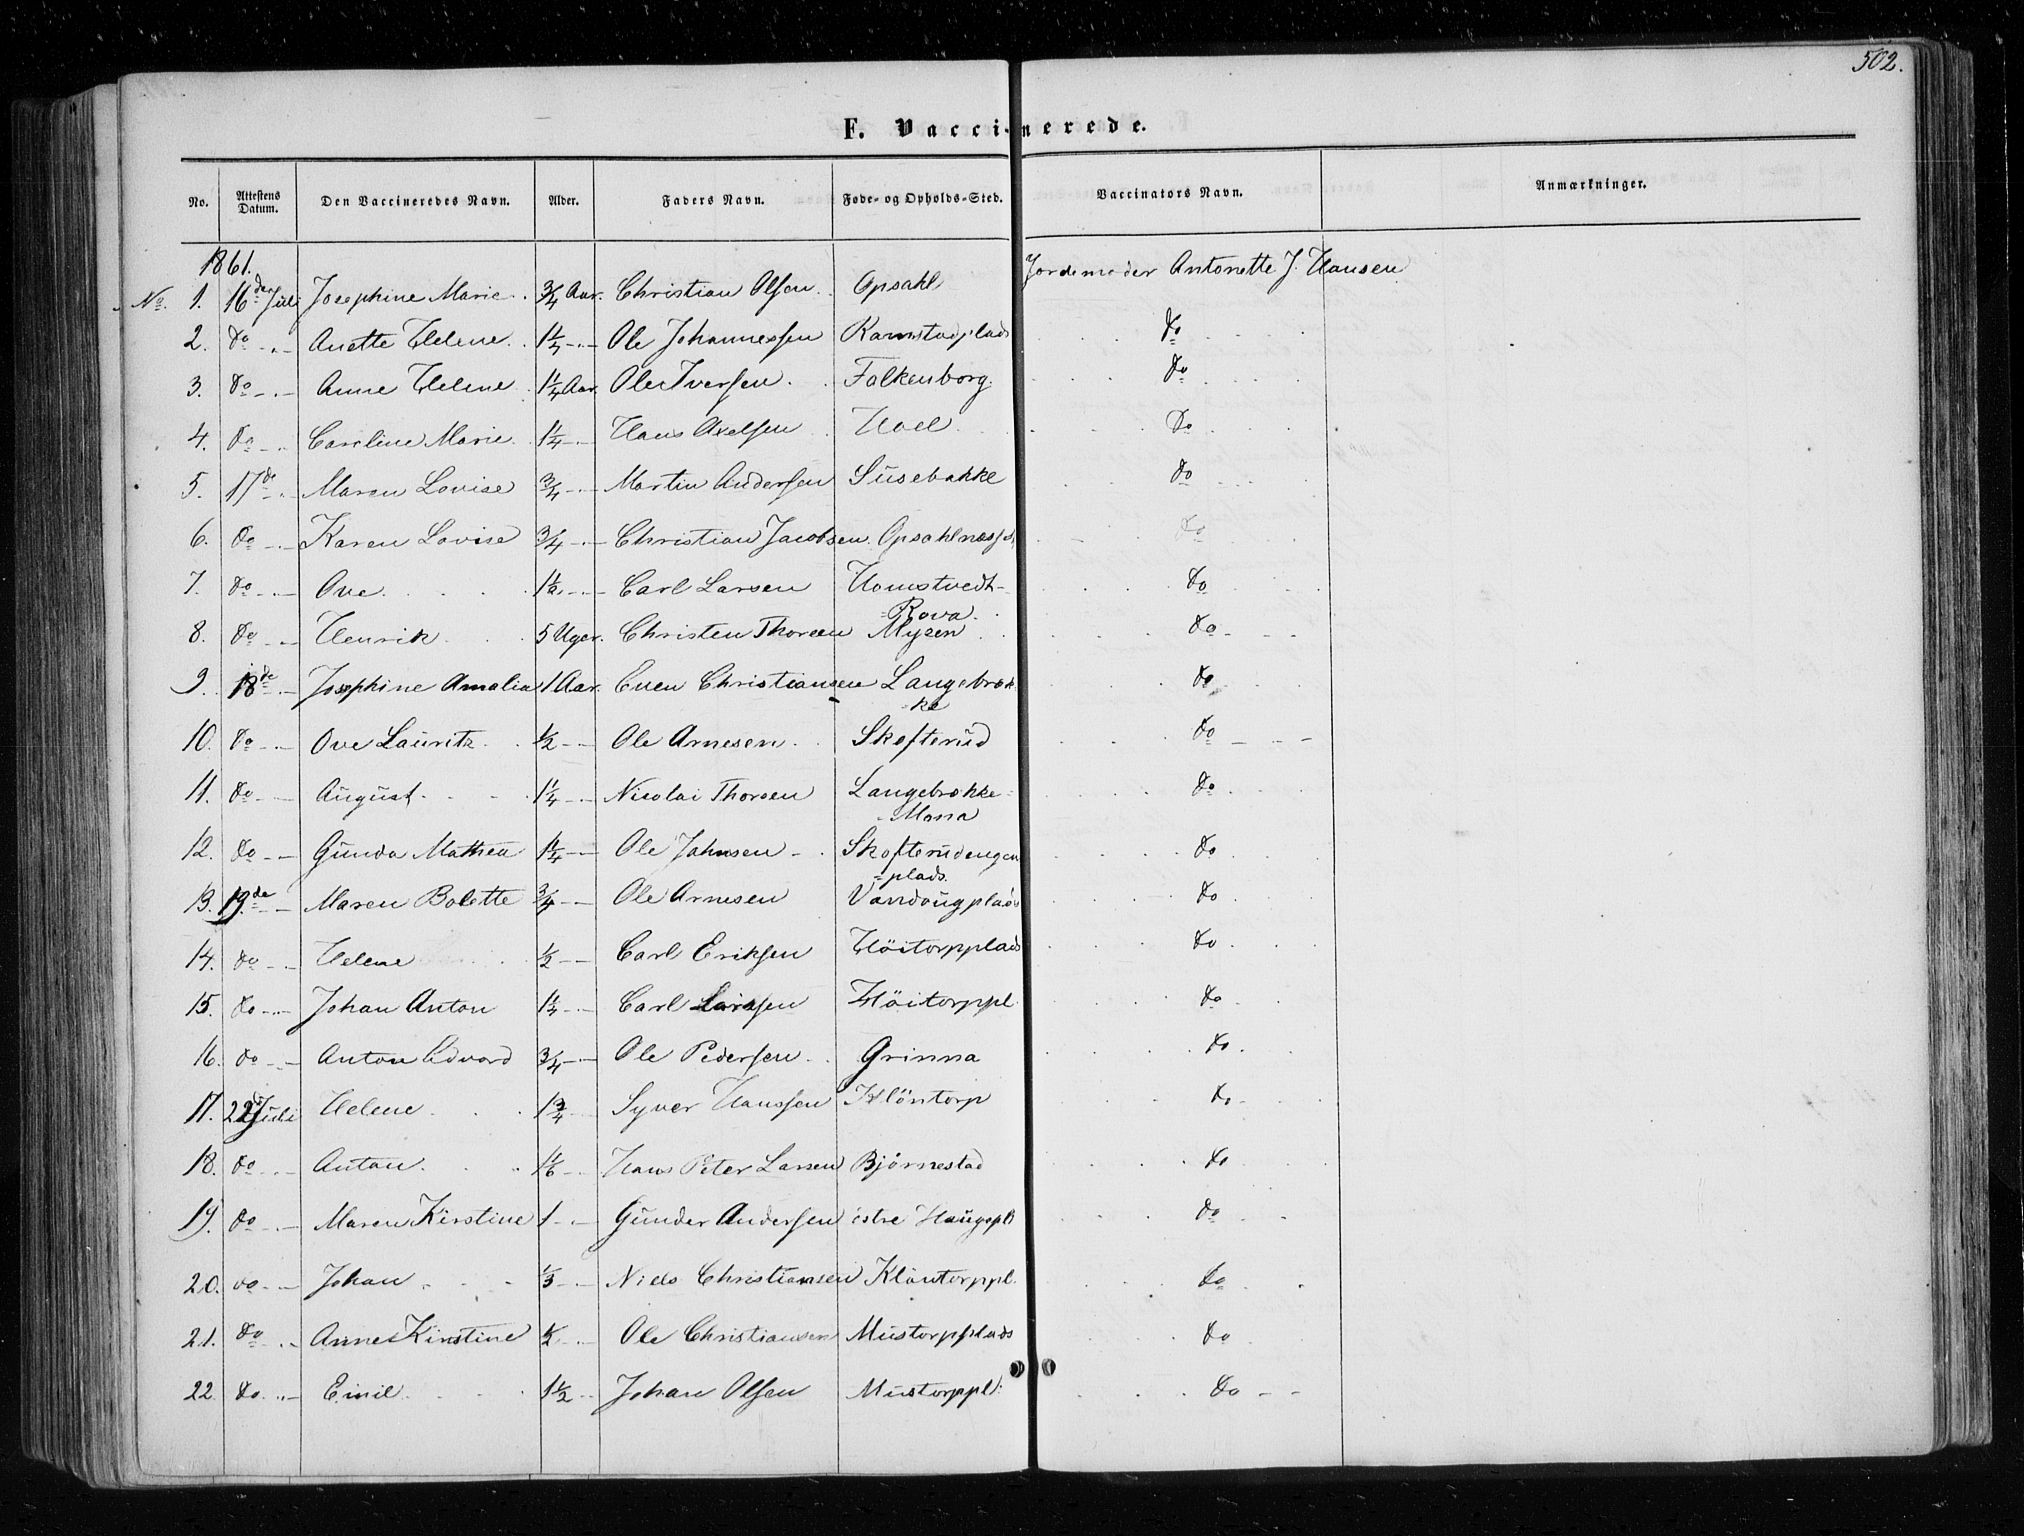 502.
F. Vaccinerede.
No. Attestens Datum. Den Vaccineredes Navn. Alder. Faders Navn. Føde- og Opholds-Sted. Vaccinators Navn. Anmærkninger.
1861.
No. 1. 16de Juli Josephine Marie. 3/4 Aar. Christian Olsen. Opsahl Jordemoder Antonette J. Hansen
2. do Anette Helene. 1 1/4 Ole Johannessen Ramstadplads do
3. do Anne Helene 1 1/4 Aar. Ole Iversen. Falkenborg. do
4. do Caroline Marie 1 1/4 Hans Axelsen Hoel do
5. 17de Maren Lovise 3/4 Martin Andersen Susebakke do
6. do Karen Lovise 3/4 Christian Jacobsen. do
7. do Ove. Carl Larsen Homstvedt-
Rova.
do
8. do Henrik 5 Uger. Christen Thorsen Mysen do
9. 18de Josephine Amalia 1 Aar. Even Christiansen Langebrek-
ke
do
10. do Ove Lauritz 1/2 Ole Arnesen. Skofterud do
11. do August. 1 1/4 Nicolai Thorsen Langebrekke-
Mona
do
12. do Gunda Mathea 1 1/4 Ole Johnsen Skofterudengen
plads.
do
13. 19de Maren Bolette 3/4 Ole Arnesen do
14. do Helene 1/2 Carl Eriksen Höitorpplads do
15. do Johan Anton 1 1/4 Carl Larssen Höitorppl. do
16. do Anton Edvard 3/4 Ole Pedersen. Grinna do
17. 22 Juli Helene. 1 3/4 Syver Hanssen Klöntorp do
18. do Anton. 1 1/6 Hans Peter Larsen Bjørnestad do
19. do Maren Kirstine 1 Gunder Andersen østre Haugspl do
20. do Johan 1/3 Niels Christiansen Klöntorppl. do
21. do Anne Kirstine 1/2 Ole Christiansen Mustorpplads do
22. do Emil 1 1/2 Johan Olsen Mustorppl. do